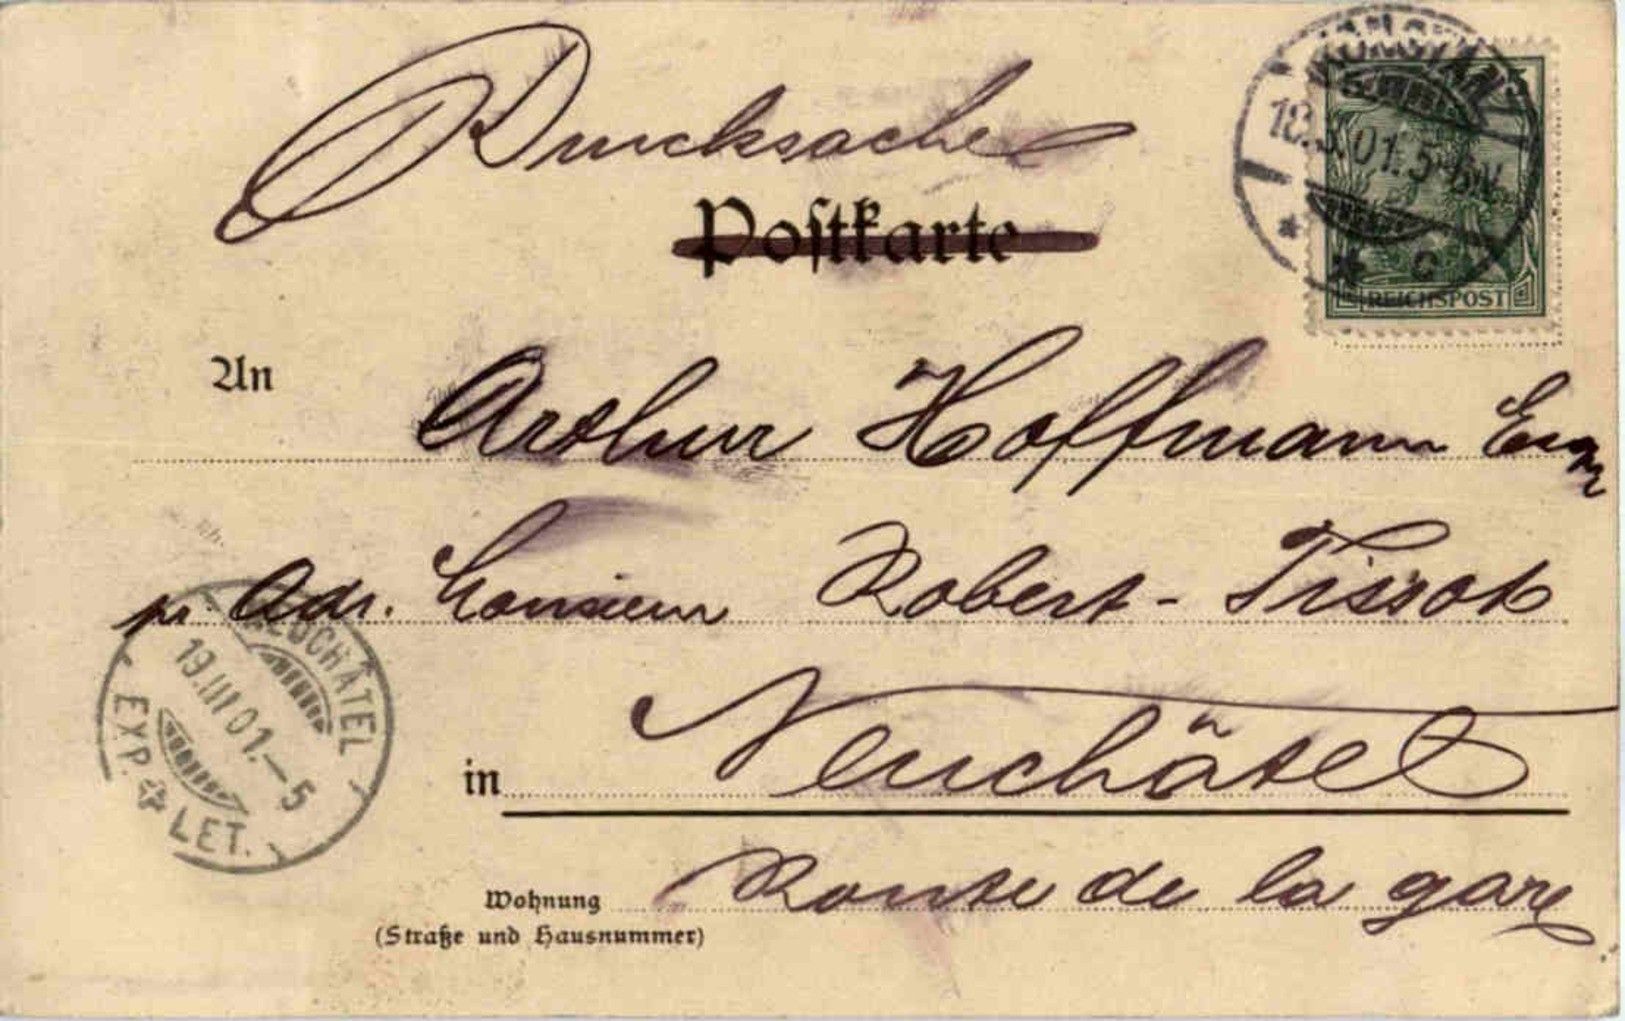 Drucksache
Postkarte
KONSTANZ
18.3.01.5-6N.
c
REICHSPOST
An
Arthur Hoffmann Esqr
pr. Adr. Monsieur Robert-Tissot
NEUCHÂTEL
19.III 01.-5
EXP. LET.
in Neuchâtel
Wohnung Route de la gare
(Straße und Hausnummer)